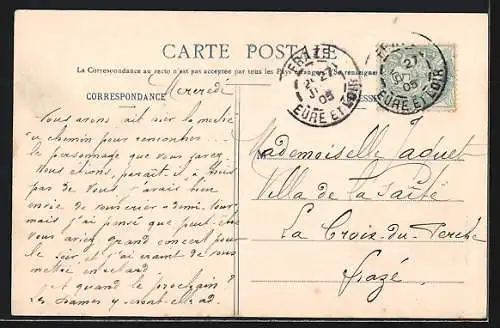 CARTE POSTALE
La Correspondance au recto n'est pas acceptée par tous les Pays étrangers. (Se renseigner
CORRESPONDANCE
FRAZÉ
27
05
EURE ET LOIR
27
05
EURE ET LOIR
Mercredi
Nous avons fait sur la moitié
du chemin pour rencontrer
le personnage que vous savez.
Nous étions, paraît il, à trois
pas de vous. J'avais bien
envie de demi tour
mais j'ai pensé que peut être
vous aviez grand concert pour
le soir et j'ai craint de vous
mettre en retard
et quand le prochain ?
les dames y
Mademoiselle Jaquet
Villa de la
La Croix-du-Perche
Frazé